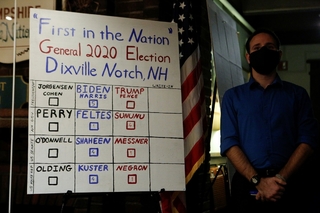 "First in the Nation"
General 2020 Election
Dixville Notch, NH
JORGENSEN COHEN
BIDEN HARRIS
TRUMP PENCE
WRITE-IN
PERRY
FELTES
SUNUNU
O'DONNELL
SHAHEEN
MESSNER
OLDING
KUSTER
NEGRON